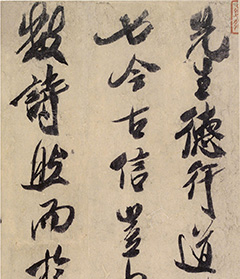 先生德行道
今古信豈
數詩然而於